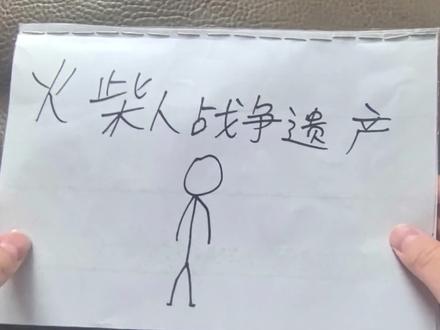 火柴人战争遗产